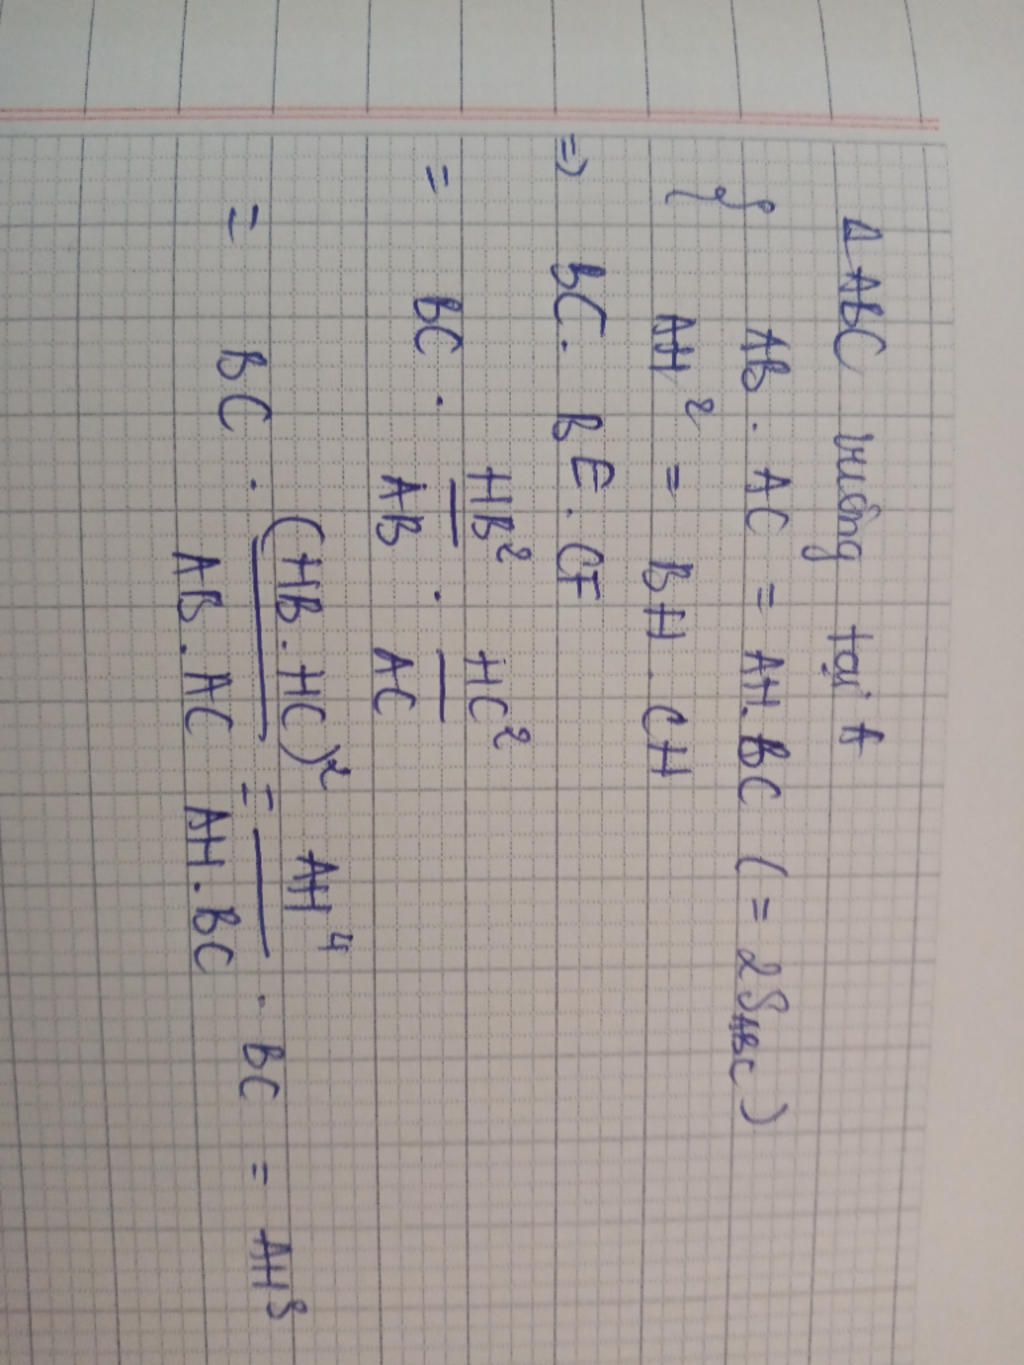 Δ ABC vuông tại A
{ AB . AC = AH . BC ( = 2S_ABC )
AH² = BH . CH
=> BC . BE . CF
= BC . HB²/AB . HC²/AC
= BC . (HB . HC)²/AB . AC = AH⁴/AH . BC . BC = AH³